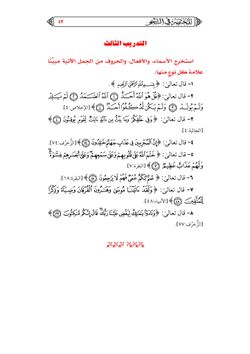 ٥٧
التدريب الثالث
استخرج الأسماء، والأفعال، والحروف من الجمل الآتية مبيِّنًا
علامة كل نوع منها:
١- قال تعالى: ﴿بِسْمِ اللَّهِ الرَّحْمَٰنِ الرَّحِيمِ﴾.
٢- قال تعالى: ﴿قُلْ هُوَ اللَّهُ أَحَدٌ ۝ اللَّهُ الصَّمَدُ ۝ لَمْ يَلِدْ
وَلَمْ يُولَدْ ۝ وَلَمْ يَكُن لَّهُ كُفُوًا أَحَدٌ ۝﴾ [الإخلاص:٤].
٣- قال تعالى: ﴿وَفِي خَلْقِكُمْ وَمَا يَبُثُّ مِن دَابَّةٍ آيَاتٌ لِّقَوْمٍ يُوقِنُونَ ۝﴾
[الجاثية:٤].
٤- قال تعالى: ﴿إِنَّ الْمُجْرِمِينَ فِي عَذَابِ جَهَنَّمَ خَالِدُونَ ۝﴾ [الزُّخرُف:٧٤].
٥- قال تعالى: ﴿خَتَمَ اللَّهُ عَلَىٰ قُلُوبِهِمْ وَعَلَىٰ سَمْعِهِمْ وَعَلَىٰ أَبْصَارِهِمْ غِشَاوَةٌ
وَلَهُمْ عَذَابٌ عَظِيمٌ ۝﴾ [البقرة:٧].
٦- قال تعالى: ﴿صُمٌّ بُكْمٌ عُمْيٌ فَهُمْ لَا يَرْجِعُونَ ۝﴾ [البقرة:١٨].
٧- قال تعالى: ﴿وَلَقَدْ آتَيْنَا مُوسَىٰ وَهَارُونَ الْفُرْقَانَ وَضِيَاءً وَذِكْرًا
لِّلْمُتَّقِينَ ۝﴾ [الأنبياء:٤٨].
٨- قال تعالى: ﴿وَنَادَوْا يَا مَالِكُ لِيَقْضِ عَلَيْنَا رَبُّكَ قَالَ إِنَّكُم مَّاكِثُونَ ۝﴾
[الزُّخرُف:٧٧].